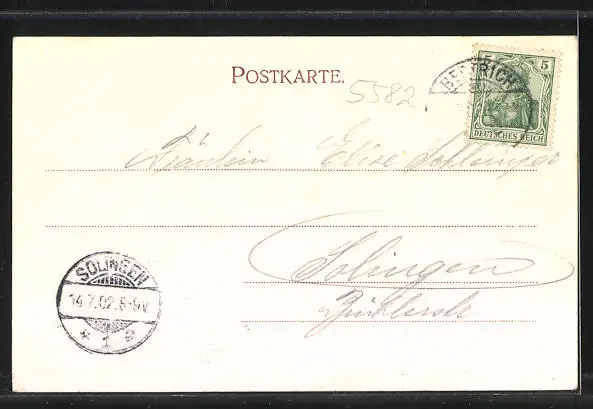 POSTKARTE.
5582
5
DEUTSCHES REICH
Fräulein Elise
Solingen
SOLINGEN
14.7.02.8-9V
* 1 *